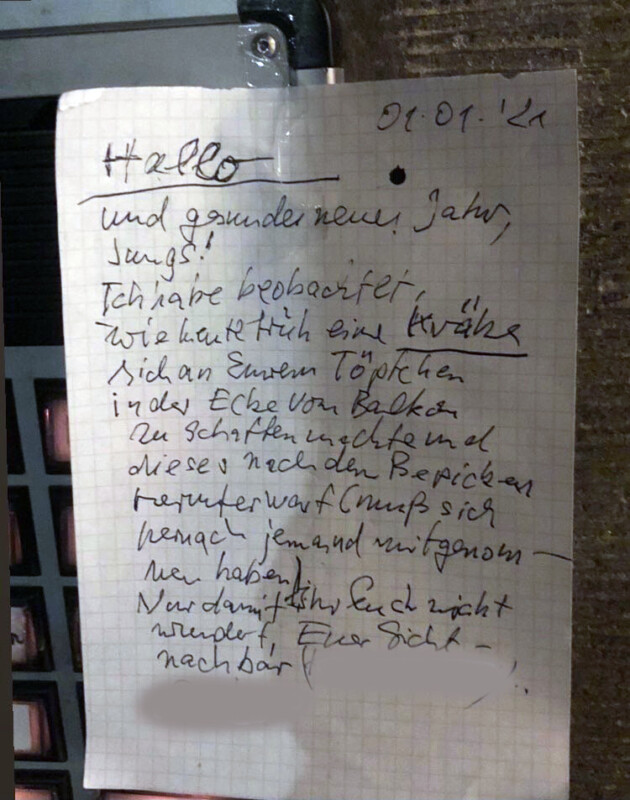 01.01.'21
Hallo
und gesundes neues Jahr,
Jungs!
Ich habe beobachtet,
wie heute früh eine Krähe
sich an Eurem Töpfchen
in der Ecke vom Balkon
zu schaffen machte und
dieses nach dem Bepicken
runterwarf (muß sich
hernach jemand mitgenom-
men haben).
Nur damit Ihr Euch nicht
wundert, Euer Sicht-
nachbar (